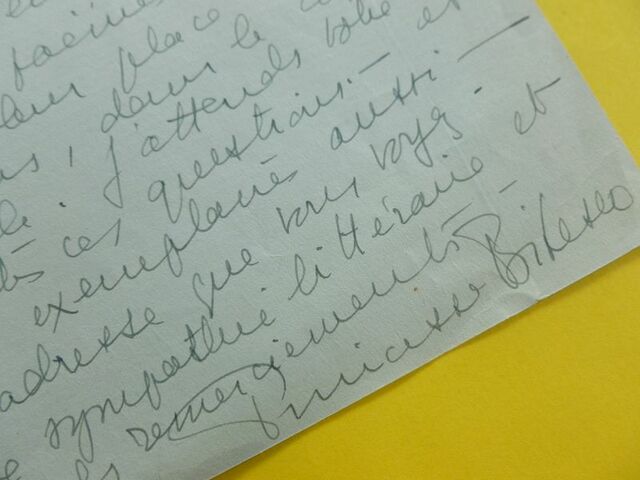 leur place
dans le
j'attends votre et
ces questions. —
exemplaires aussi —
adresse que vous voyez.
sympathie littéraire et
remerciements —
Princesse Bibesco